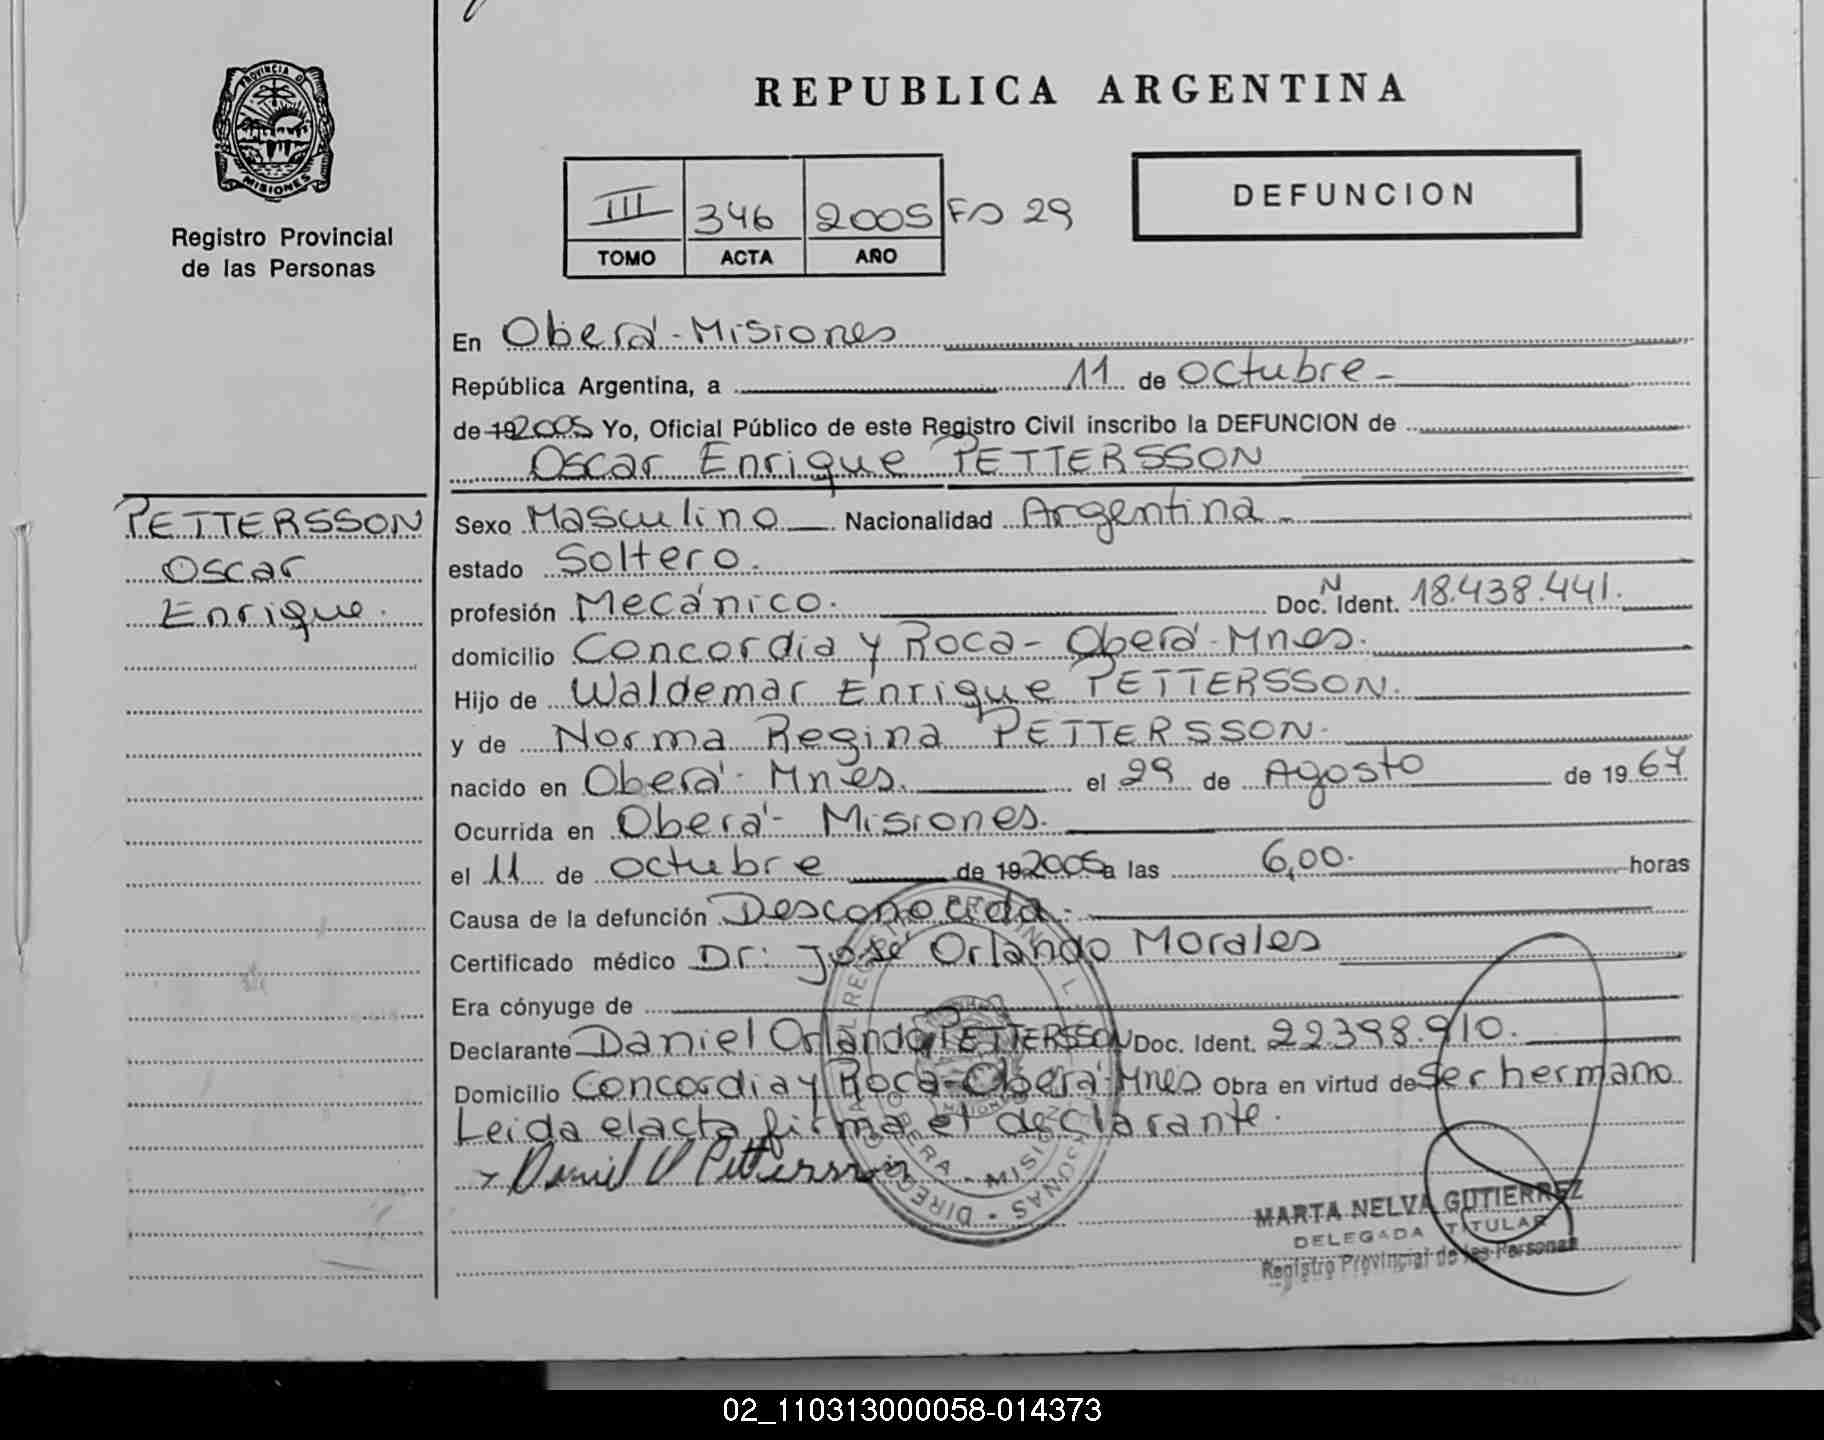 REPUBLICA ARGENTINA
PROVINCIA D MISIONES
Registro Provincial
de las Personas
III 346 2005 Fo 29
TOMO ACTA AÑO
DEFUNCION
En Oberá - Misiones
República Argentina, a 11 de octubre -
de 192005 Yo, Oficial Público de este Registro Civil inscribo la DEFUNCION de
Oscar Enrique PETTERSSON
PETTERSSON
Oscar
Enrique.
Sexo Masculino Nacionalidad Argentina -
estado Soltero.
profesión Mecánico. Doc. N Ident. 18.438.441.
domicilio Concordia y Roca - Oberá - Mnes.
Hijo de Waldemar Enrique PETTERSSON.
y de Norma Regina PETTERSSON.
nacido en Oberá - Mnes. el 29 de Agosto de 19 67
Ocurrida en Oberá - Misiones.
el 11 de octubre de 192005 a las 6,00. horas
Causa de la defunción Desconocida.
Certificado médico Dr: José Orlando Morales
Era cónyuge de
Declarante Daniel Orlando PETTERSSON Doc. Ident. 22.398.910.
Domicilio Concordia y Roca - Oberá - Mnes Obra en virtud de Ser hermano
Leida el acta firma el declarante.
Daniel O Pettersson
OBERA - MISIONES
MARTA NELVA GUTIERREZ
DELEGADA TITULAR
Registro Provincial de las Personas
02_110313000058-014373